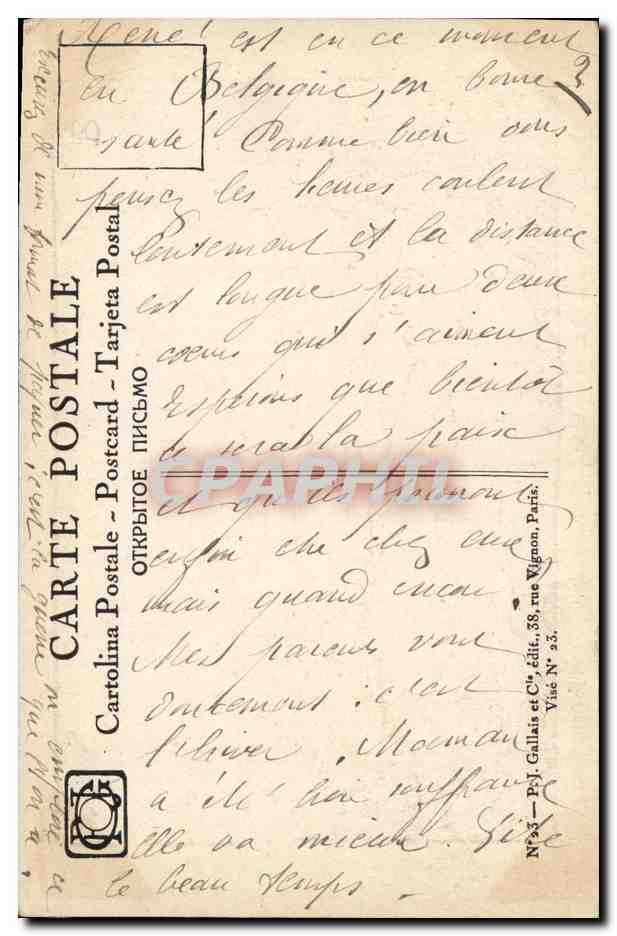 René est en ce moment
en Belgique, en bonne
santé. Comme bien vous
pensez les heures coulent
lentement et la distance
est longue pour deux
coeurs qui s'aiment
Espérons que bientôt
ce sera la paix
et qu'ils pourront
enfin être chez eux,
mais quand encore.
Mes parents vont
doucement : c'est
l'hiver. Maman
a été bien souffrante
elle va mieux. Vive
le beau temps.
2
Excusez de mon format de papier, c'est la guerre on emploie ce
que l'on a.
CARTE POSTALE
Cartolina Postale - Postcard - Tarjeta Postal
ОТКРЫТОЕ ПИСЬМО
N° 23 — P. J. Gallais et Cie, édit., 38, rue Vignon, Paris.
Visé N° 23.
CPAPHIL